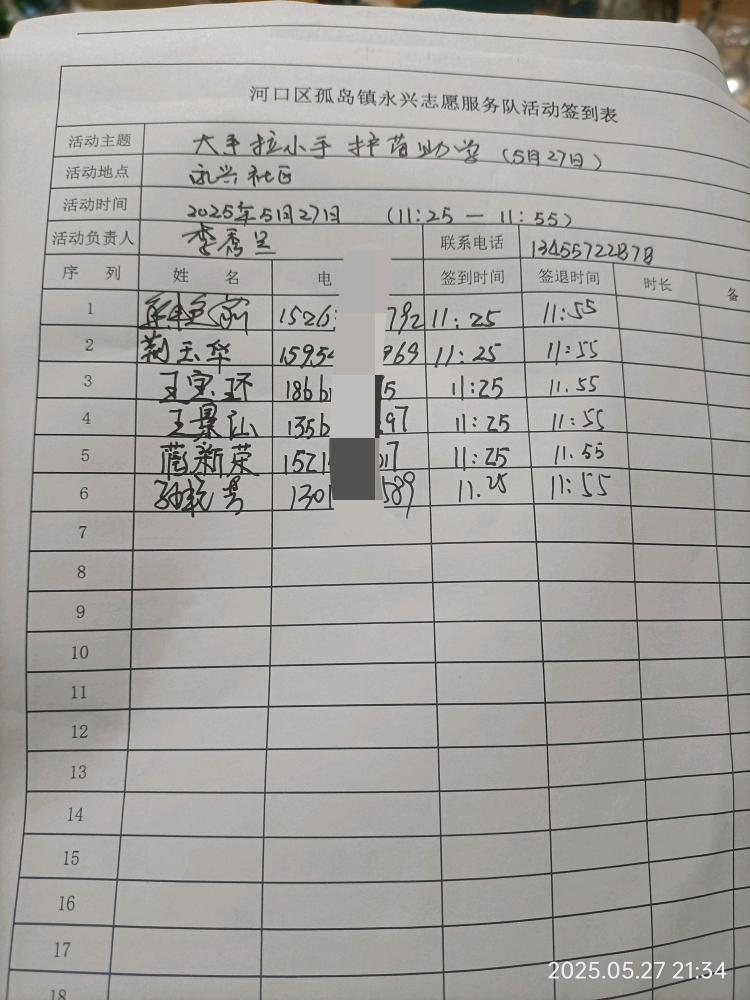 河口区孤岛镇永兴志愿服务队活动签到表
活动主题 大手拉小手 护苗助学 (5月27日)
活动地点 永兴社区
活动时间 2025年5月27日 (11:25 — 11:55)
活动负责人 李秀兰 联系电话 13455722878
序 列 姓 名 电 签到时间 签退时间 时长 备
1 1526 792 11:25 11:55
2 荆玉华 1595 969 11:25 11:55
3 王宝环 186 5 11:25 11.55
4 王景 135 97 11:25 11:55
5 蔺新荣 1521 17 11:25 11.55
6 130 589 11.25 11:55
7
8
9
10
11
12
13
14
15
16
17
18
2025.05.27 21:34